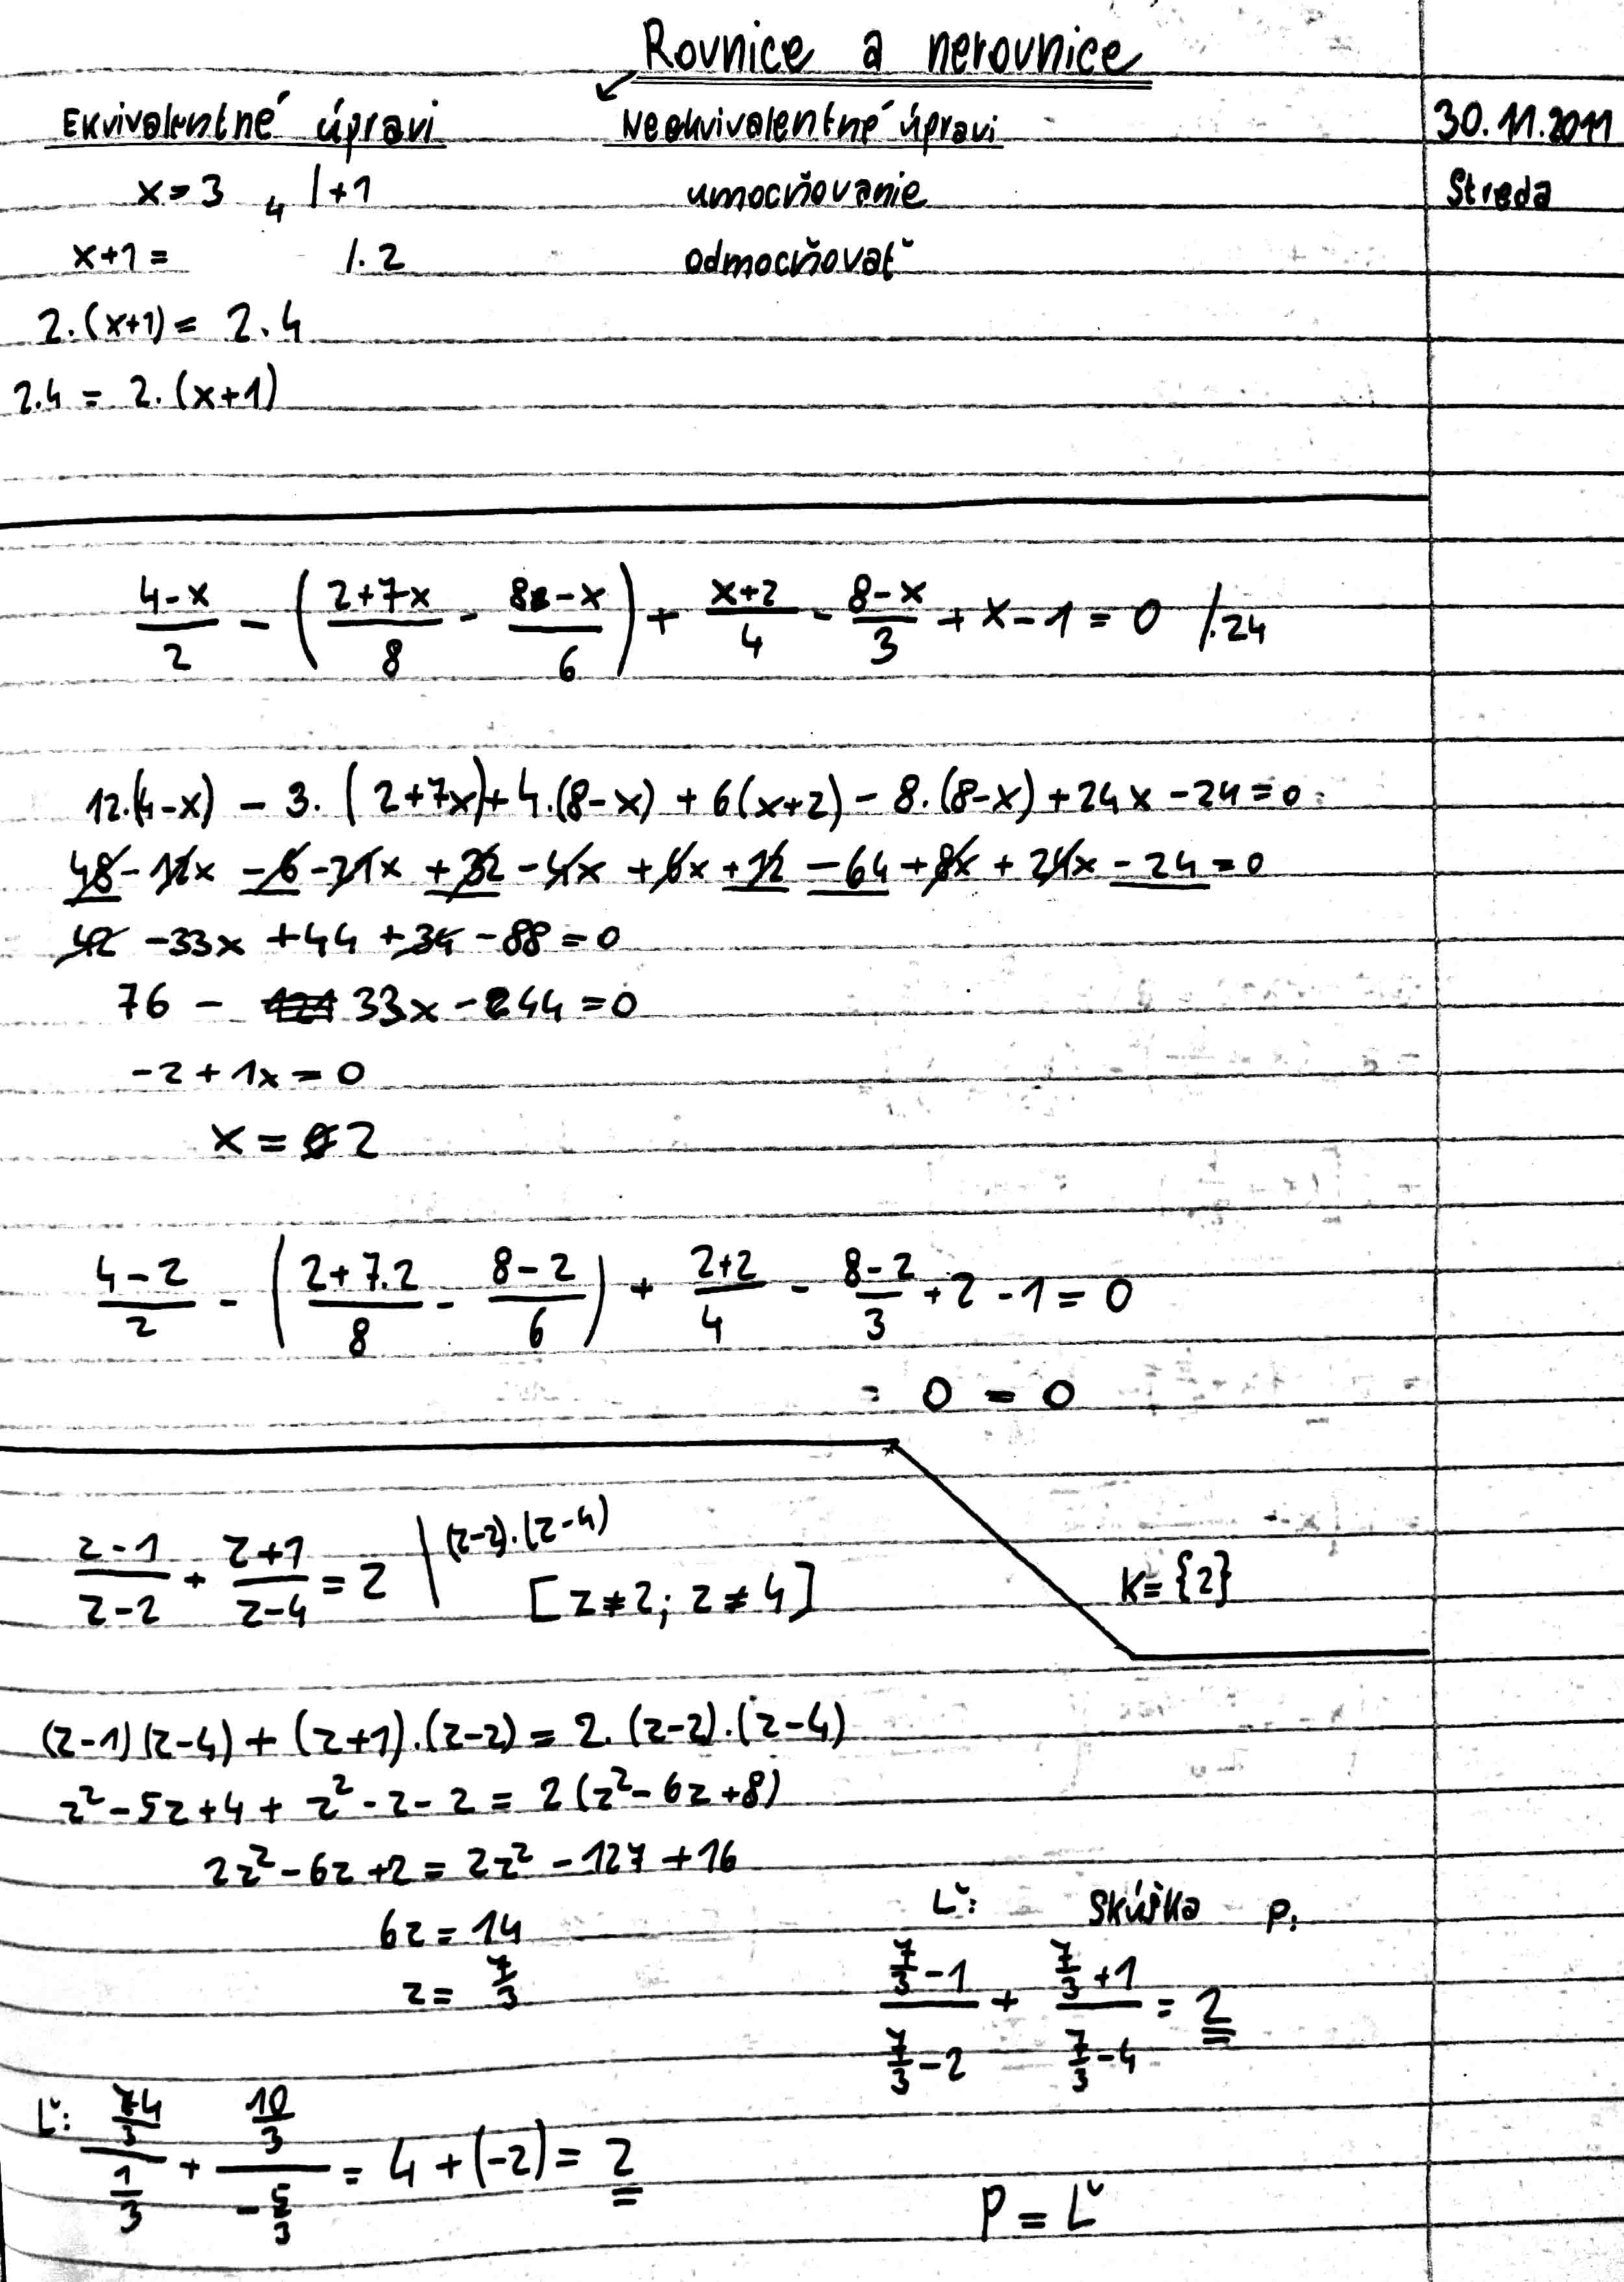 Rovnice a nerovnice
Ekvivalentné úpravi Neekvivalentné úpravi 30.11.2011
x = 3 4 /+1 umocňovanie Streda
x+1 = /. 2 odmocňovať
2.(x+1) = 2.4
2.4 = 2.(x+1)
(4-x)/2 - ((2+7x)/8 - (8-x)/6) + (x+2)/4 - (8-x)/3 + x - 1 = 0 /.24
12.(4-x) - 3.(2+7x) + 4.(8-x) + 6(x+2) - 8.(8-x) + 24x - 24 = 0
48 - 12x - 6 - 21x + 32 - 4x + 6x + 12 - 64 + 8x + 24x - 24 = 0
42 - 33x + 44 + 34 - 88 = 0
76 - 33x - 44 = 0
-2 + 1x = 0
x = 2
(4-2)/2 - ((2+7.2)/8 - (8-2)/6) + (2+2)/4 - (8-2)/3 + 2 - 1 = 0
= 0 = 0
(z-1)/(z-2) + (z+1)/(z-4) = 2 | (z-2).(z-4)
[z≠2; z≠4]
K = {2}
(z-1)(z-4) + (z+1).(z-2) = 2.(z-2).(z-4)
z² - 5z + 4 + z² - z - 2 = 2(z² - 6z + 8)
2z² - 6z + 2 = 2z² - 12z + 16
6z = 14
z = 7/3
Ľ: Skúška P:
(7/3 - 1)/(7/3 - 2) + (7/3 + 1)/(7/3 - 4) = 2
Ľ: (4/3)/(1/3) + (10/3)/(-5/3) = 4 + (-2) = 2
P = Ľ